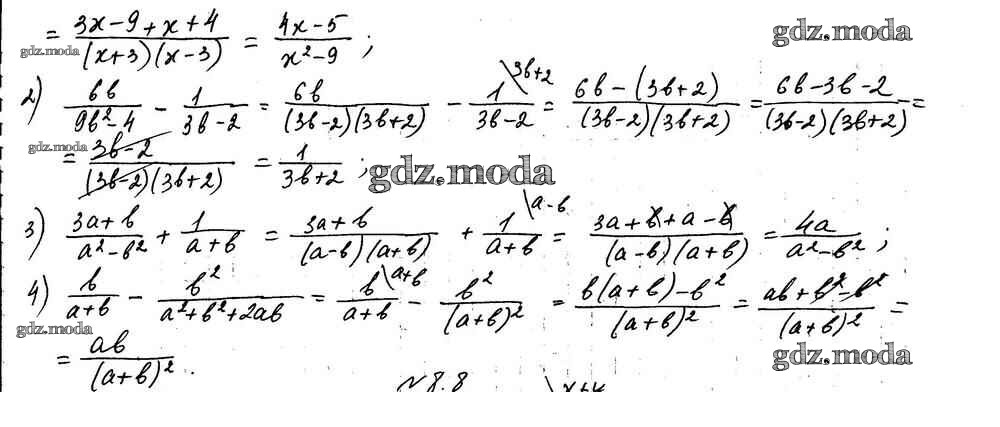 = (3x-9+x+4)/((x+3)(x-3)) = (4x-5)/(x²-9) ; gdz.moda
gdz.moda
2) 6b/(9b²-4) - 1/(3b-2) = 6b/((3b-2)(3b+2)) - 1\3b+2/(3b-2) = (6b-(3b+2))/((3b-2)(3b+2)) = (6b-3b-2)/((3b-2)(3b+2)) =
gdz.moda = (3b-2)/((3b-2)(3b+2)) = 1/(3b+2) ; gdz.moda
3) (3a+b)/(a²-b²) + 1/(a+b) = (3a+b)/((a-b)(a+b)) + 1\a-b/(a+b) = (3a+b+a-b)/((a-b)(a+b)) = 4a/(a²-b²) ;
4) b/(a+b) - b²/(a²+b²+2ab) = b\a+b/(a+b) - b²/(a+b)² = (b(a+b)-b²)/(a+b)² = (ab+b²-b²)/(a+b)² =
gdz.moda
= ab/(a+b)² . gdz.moda
№8.8